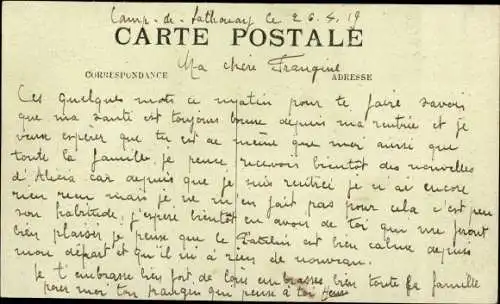 Camp-de-Sathonay le 26.4.19
CARTE POSTALE
Ma chère Frangine
CORRESPONDANCE
ADRESSE
Ces quelques mots ce matin pour te faire savoir
que ma santé est toujours bonne depuis ma rentrée et je
veux espérer que tu est de même que moi ainsi que
toute la famille, je pense recevoir bientôt des nouvelles
d'Alicia car depuis que je suis rentrée je n'ai encore
rien reçu mais je ne m'en fait pas pour cela c'est peu
son habitude, j'espère bientôt en avoir de toi qui me feront
bien plaisir je pense que le est bien calme depuis
mon départ et qu'il n'y a rien de nouveau.
Je t'embrasse bien fort de loin embrasse bien toute la famille
pour moi ton frangin qui pense à toi